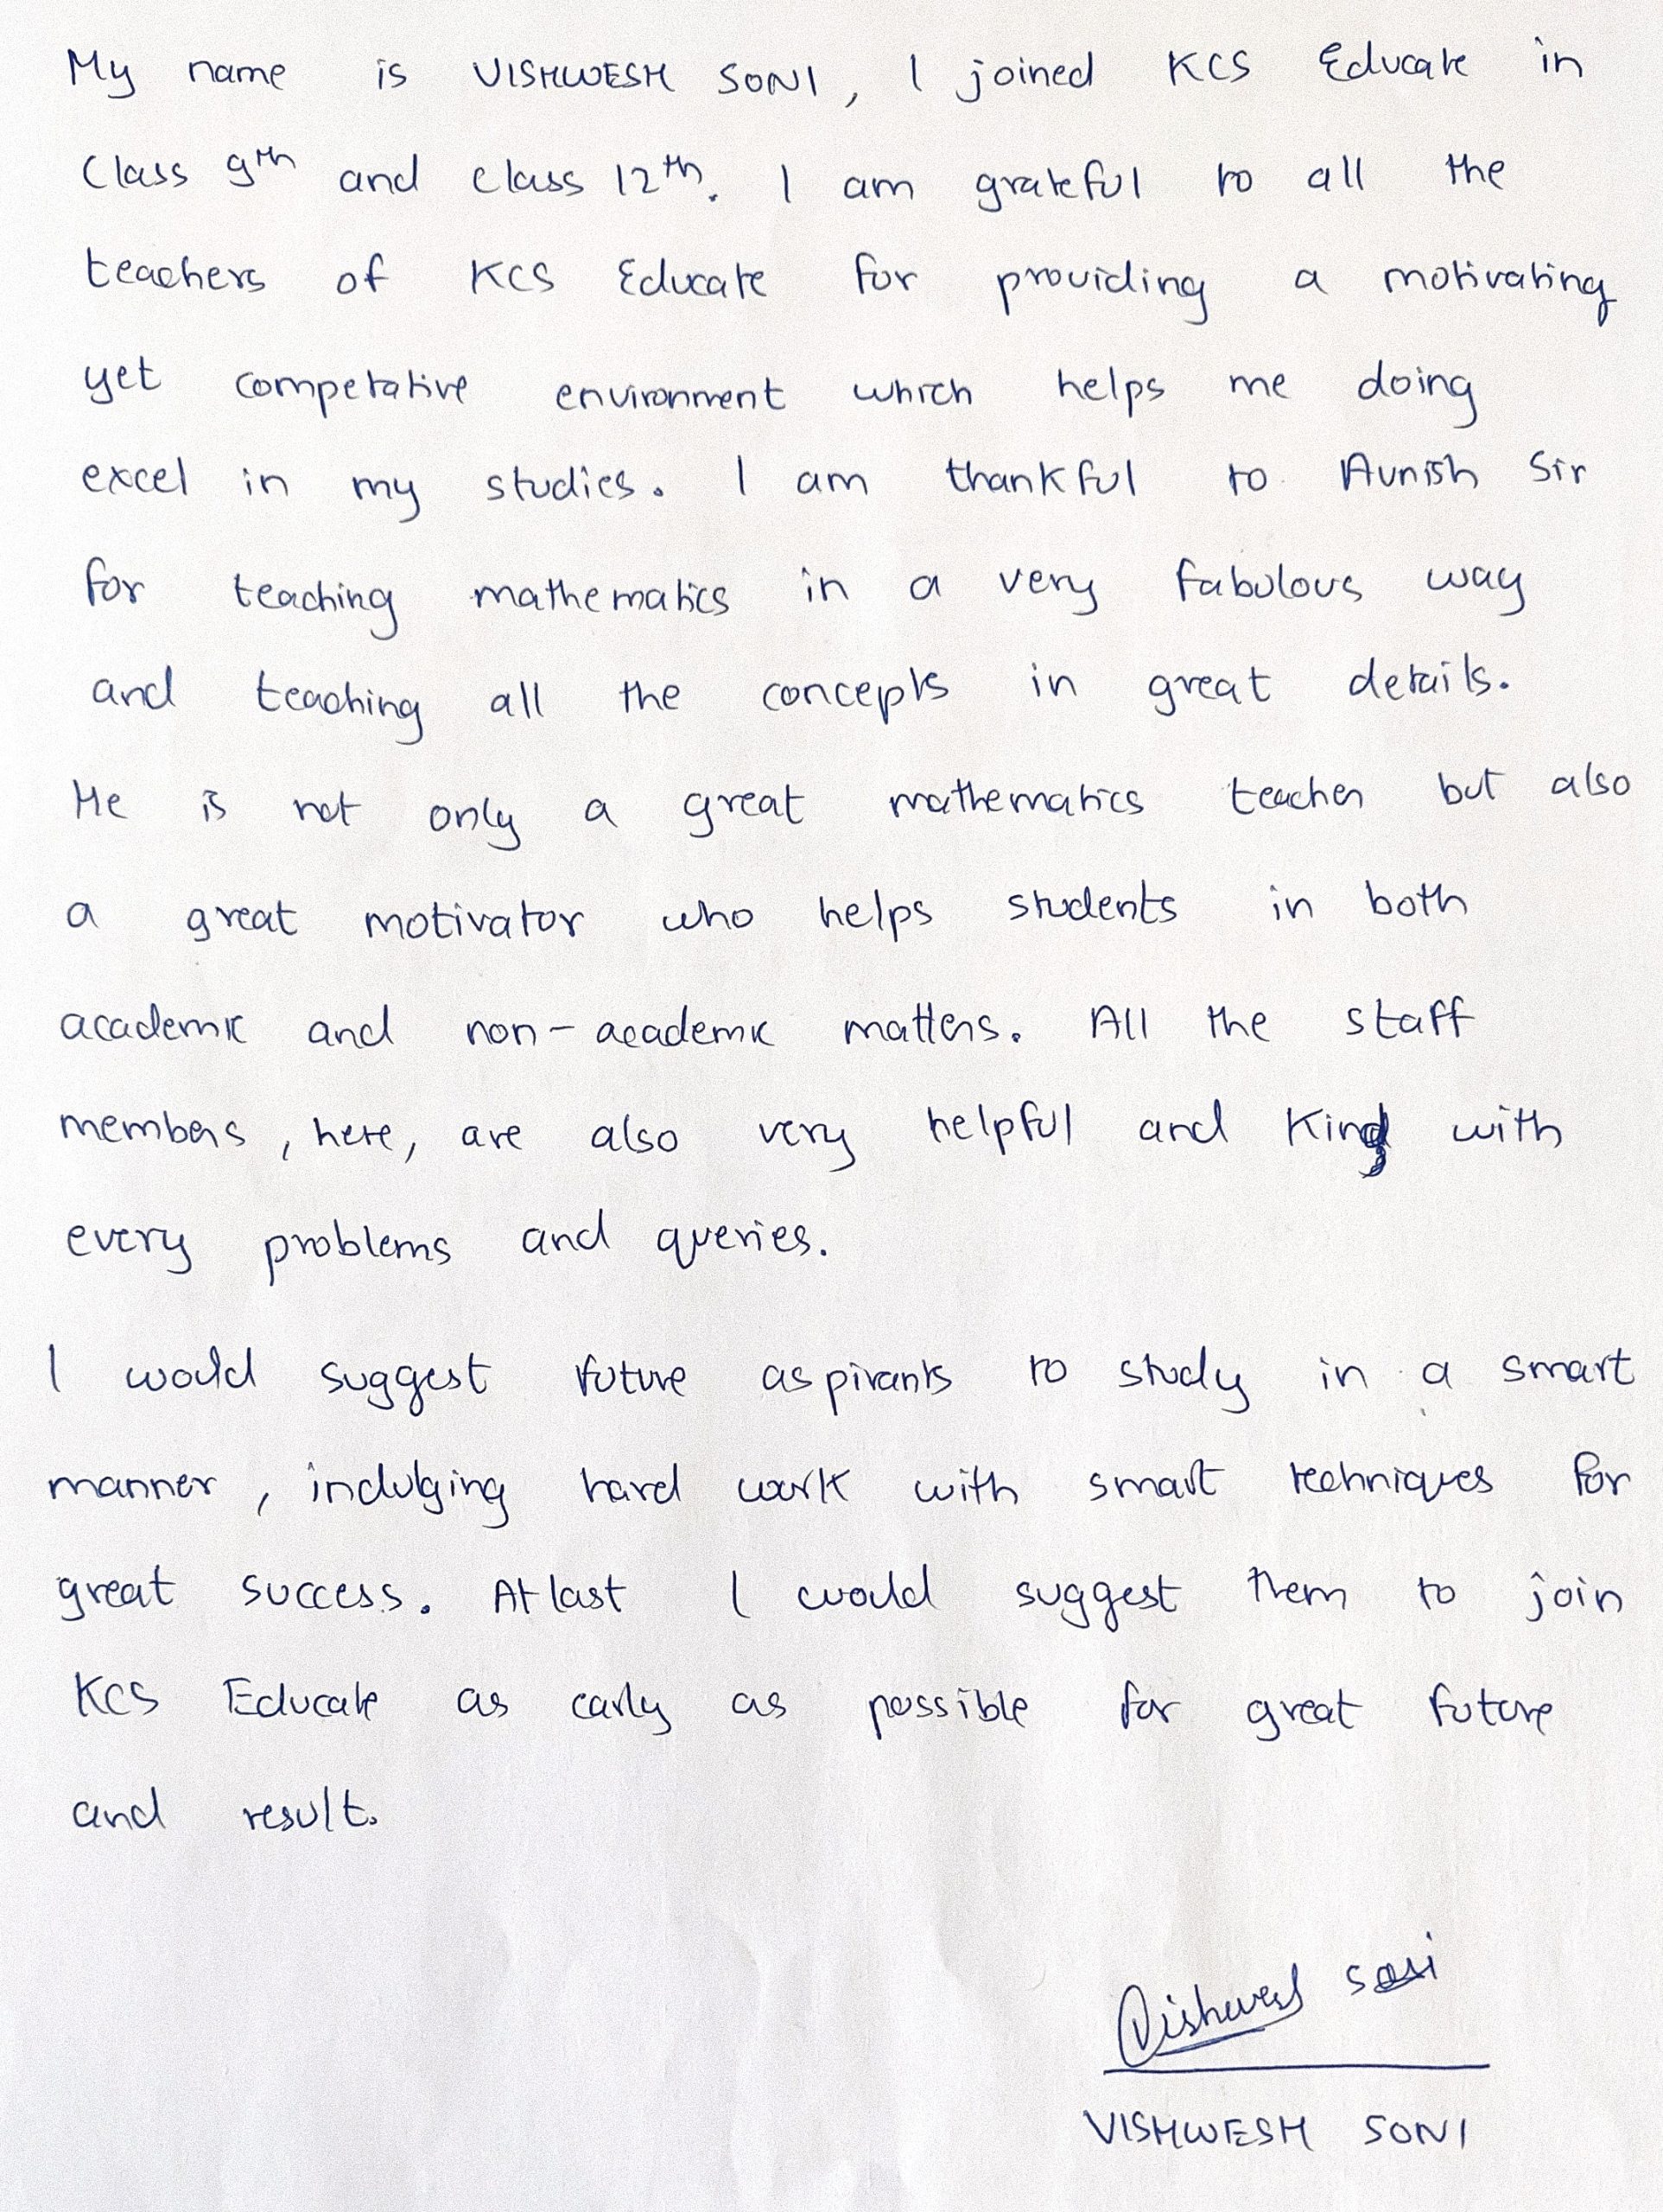 My name is VISHWESH SONI, I joined KCS Educate in
Class 9th and class 12th. I am grateful to all the
teachers of KCS Educate for providing a motivating
yet competative environment which helps me doing
excel in my studies. I am thankful to Avnish Sir
for teaching mathematics in a very fabulous way
and teaching all the concepts in great details.
He is not only a great mathematics teacher but also
a great motivator who helps students in both
academic and non-academic matters. All the staff
members, here, are also very helpful and Kind with
every problems and queries.
I would suggest future aspirants to study in a smart
manner, indulging hard work with smart techniques for
great success. At last I would suggest them to join
KCS Educate as early as possible for great future
and result.
Vishwesh Soni
VISHWESH SONI